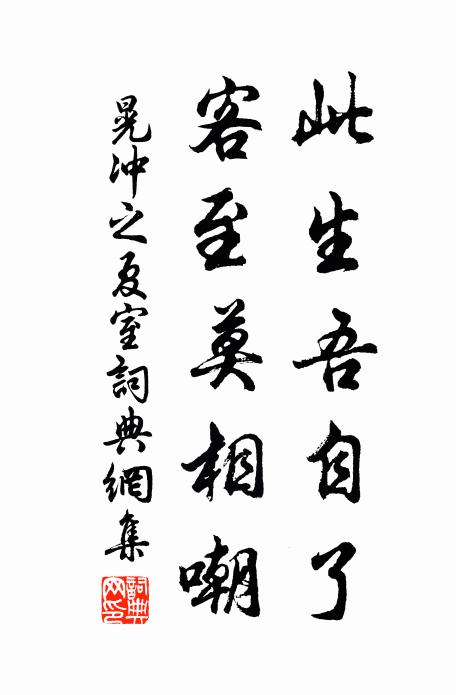 此生吾自了
客至莫相嘲
晁冲之夏室詞典網集
詞典
网印